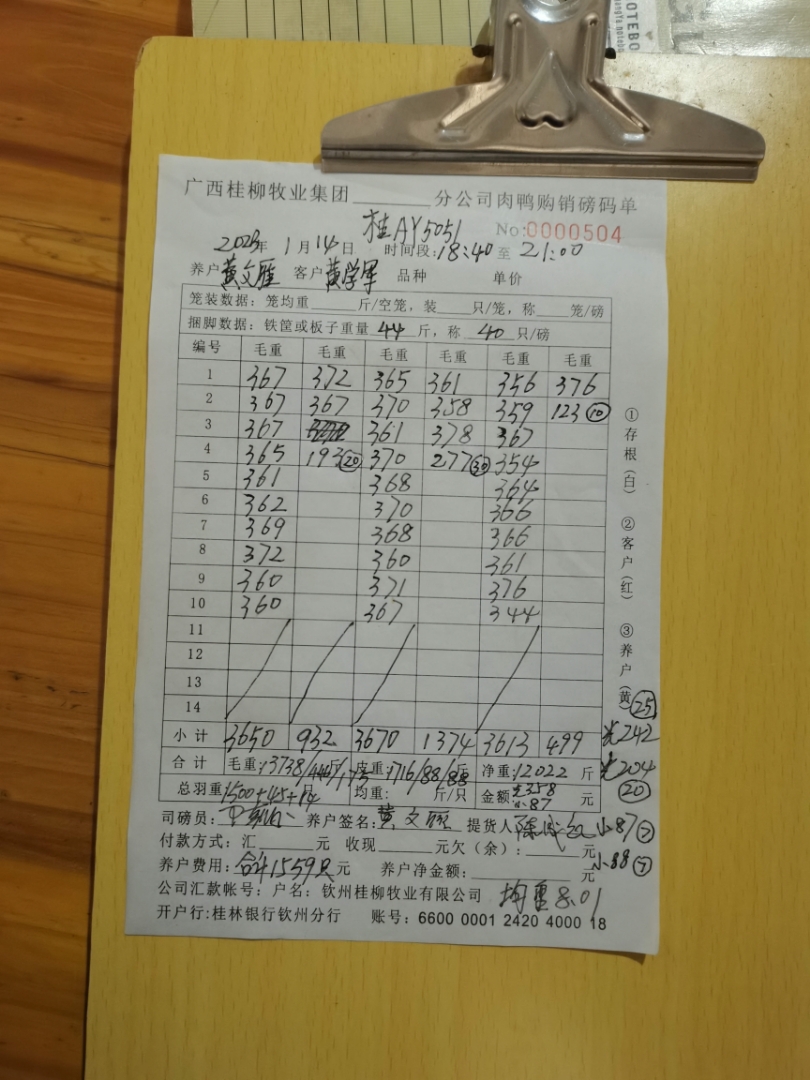 OTEBO
广西桂柳牧业集团______分公司肉鸭购销磅码单
桂AY5051 No:0000504
2023年 1月14日 时间段:18:40至 21:00
养户黄文雁 客户黄学军 品种 单价
笼装数据: 笼均重______斤/空笼, 装___只/笼, 称___笼/磅
捆脚数据: 铁筐或板子重量 44 斤, 称 40 只/磅
编号 毛重 毛重 毛重 毛重 毛重 毛重
1 367 372 365 361 356 376
2 367 367 370 358 359 123⑩
3 367 361 378 367
4 365 193⑳ 370 277㉚ 354
5 361 368 364
6 362 370 366
7 369 368 366
8 372 360 361
9 360 371 376
10 360 367 344
11
12
13
14
小计 3650 932 3670 1374 3613 499
合计 毛重:13738/ 斤/175 皮重:1716/88/88斤 净重:12022 斤
总羽重1500+45+14只 均重: 斤/只 金额: 358 小87 元
司磅员: 养户签名:黄文雁 提货人 小87⑦
付款方式: 汇____元 收现____元欠(余):____元 小88⑦
养户费用:合计1559只元 养户净金额:______元
公司汇款帐号: 户名: 钦州桂柳牧业有限公司 均重8.01
开户行:桂林银行钦州分行 账号: 6600 0001 2420 4000 18
①存根(白) ②客户(红) ③养户(黄)
㉕
242
204
⑳